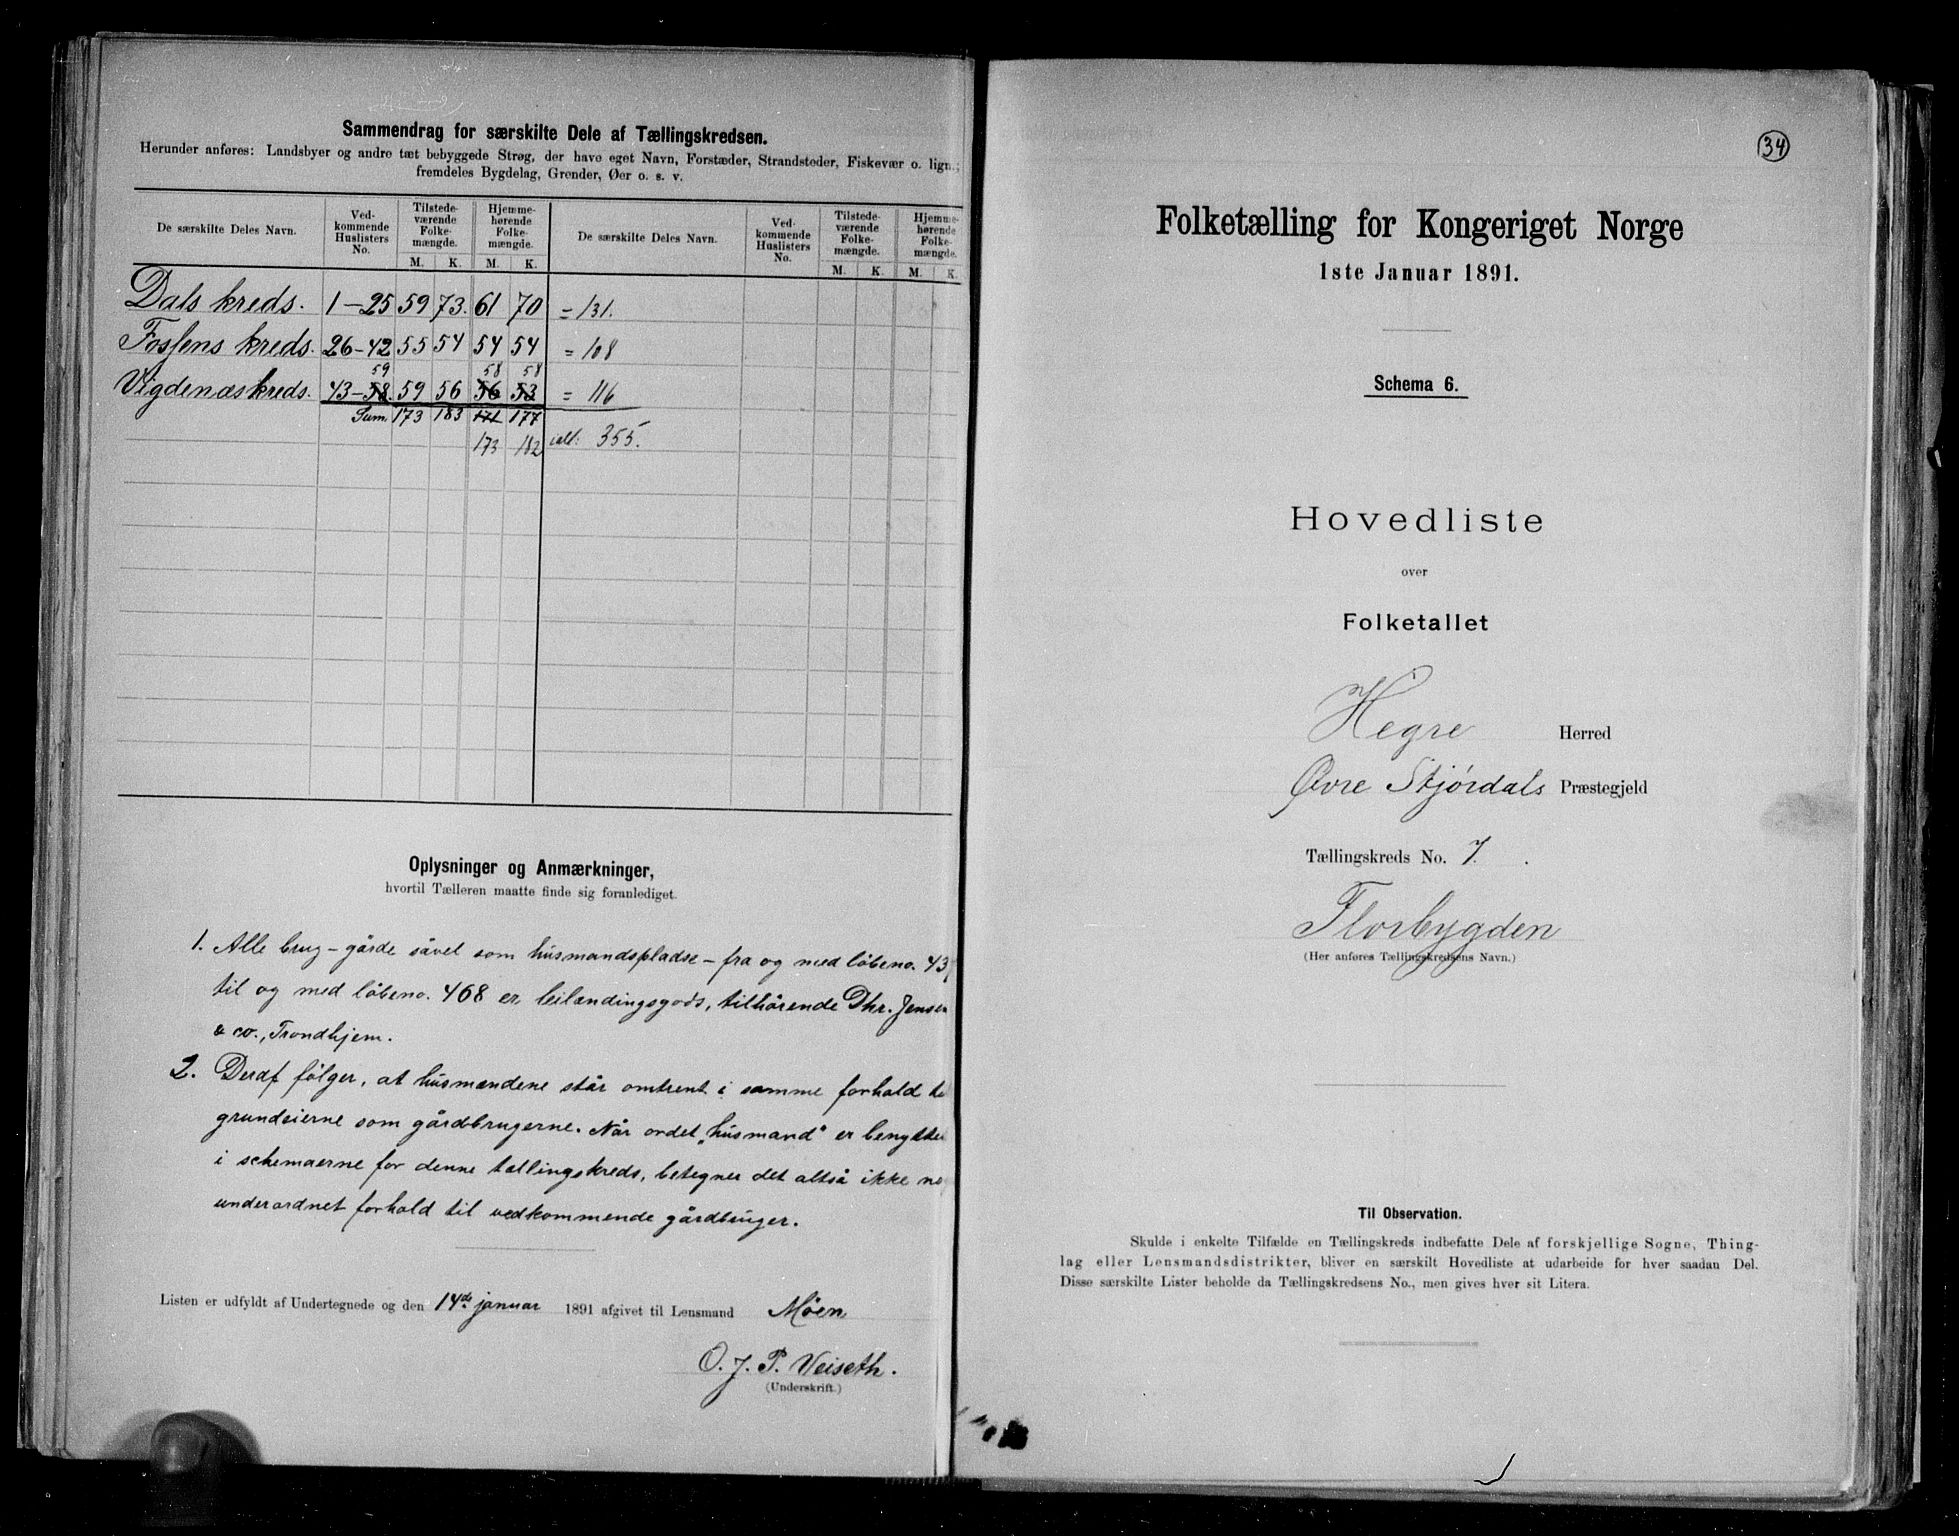 Sammendrag for særskilte Dele af Tællingskredsen.
Herunder anføres: Landsbyer og andre tæt bebyggede Strøg, der have eget Navn, Forstæder, Strandsteder, Fiskevær o. lign.;
fremdeles Bygdelag, Grender, Øer o. s. v.
De særskilte Deles Navn. Ved-kommende Huslisters No. Tilstede-værende Folke-mængde. Hjemme-hørende Folke-mængde. De særskilte Deles Navn. Ved-kommende Huslisters No. Tilstede-værende Folke-mængde. Hjemme-hørende Folke-mængde.
M. K. M. K. M. K. M. K.
Dals kreds. 1-25 59 73. 61 70 = 131.
Fossens kreds. 26-42 55 54 54 54 = 108
59 58 58
Vigdenæs kreds. 43-58. 59 56 56 53 = 116
Sum. 173 183 171 177
173 182 ialt: 355.
Oplysninger og Anmærkninger,
hvortil Tælleren maatte finde sig foranlediget.
1. Alle brug - gårde såvel som husmandspladse - fra og med løbeno. 43
til og med løbeno. 468 er leilændingsgods, tilhørende Dhr. Jensen
& co., Trondhjem.
2. Deraf følger, at husmændene står omtrent i samme forhold
grundeierne som gårdbrugerne. Når ordet „husmand" er benytte
i schemaerne for denne tællingskreds, betegner det altså ikke no
underordnet forhold til vedkommende gårdbruger.
Listen er udfyldt af Undertegnede og den 14de januar 1891 afgivet til Lensmand Möen
O. J. P. Veiseth.
(Underskrift.)
34
Folketælling for Kongeriget Norge
1ste Januar 1891.
Schema 6.
Hovedliste
over
Folketallet
Hegre Herred
Øvre Stjørdals Præstegjeld
Tællingskreds No. 7.
Florbygden
(Her anføres Tællingskredsens Navn.)
Til Observation.
Skulde i enkelte Tilfælde en Tællingskreds indbefatte Dele af forskjellige Sogne, Thing-
lag eller Lensmandsdistrikter, bliver en særskilt Hovedliste at udarbeide for hver saadan Del.
Disse særskilte Lister beholde da Tællingskredsens No., men gives hver sit Litera.